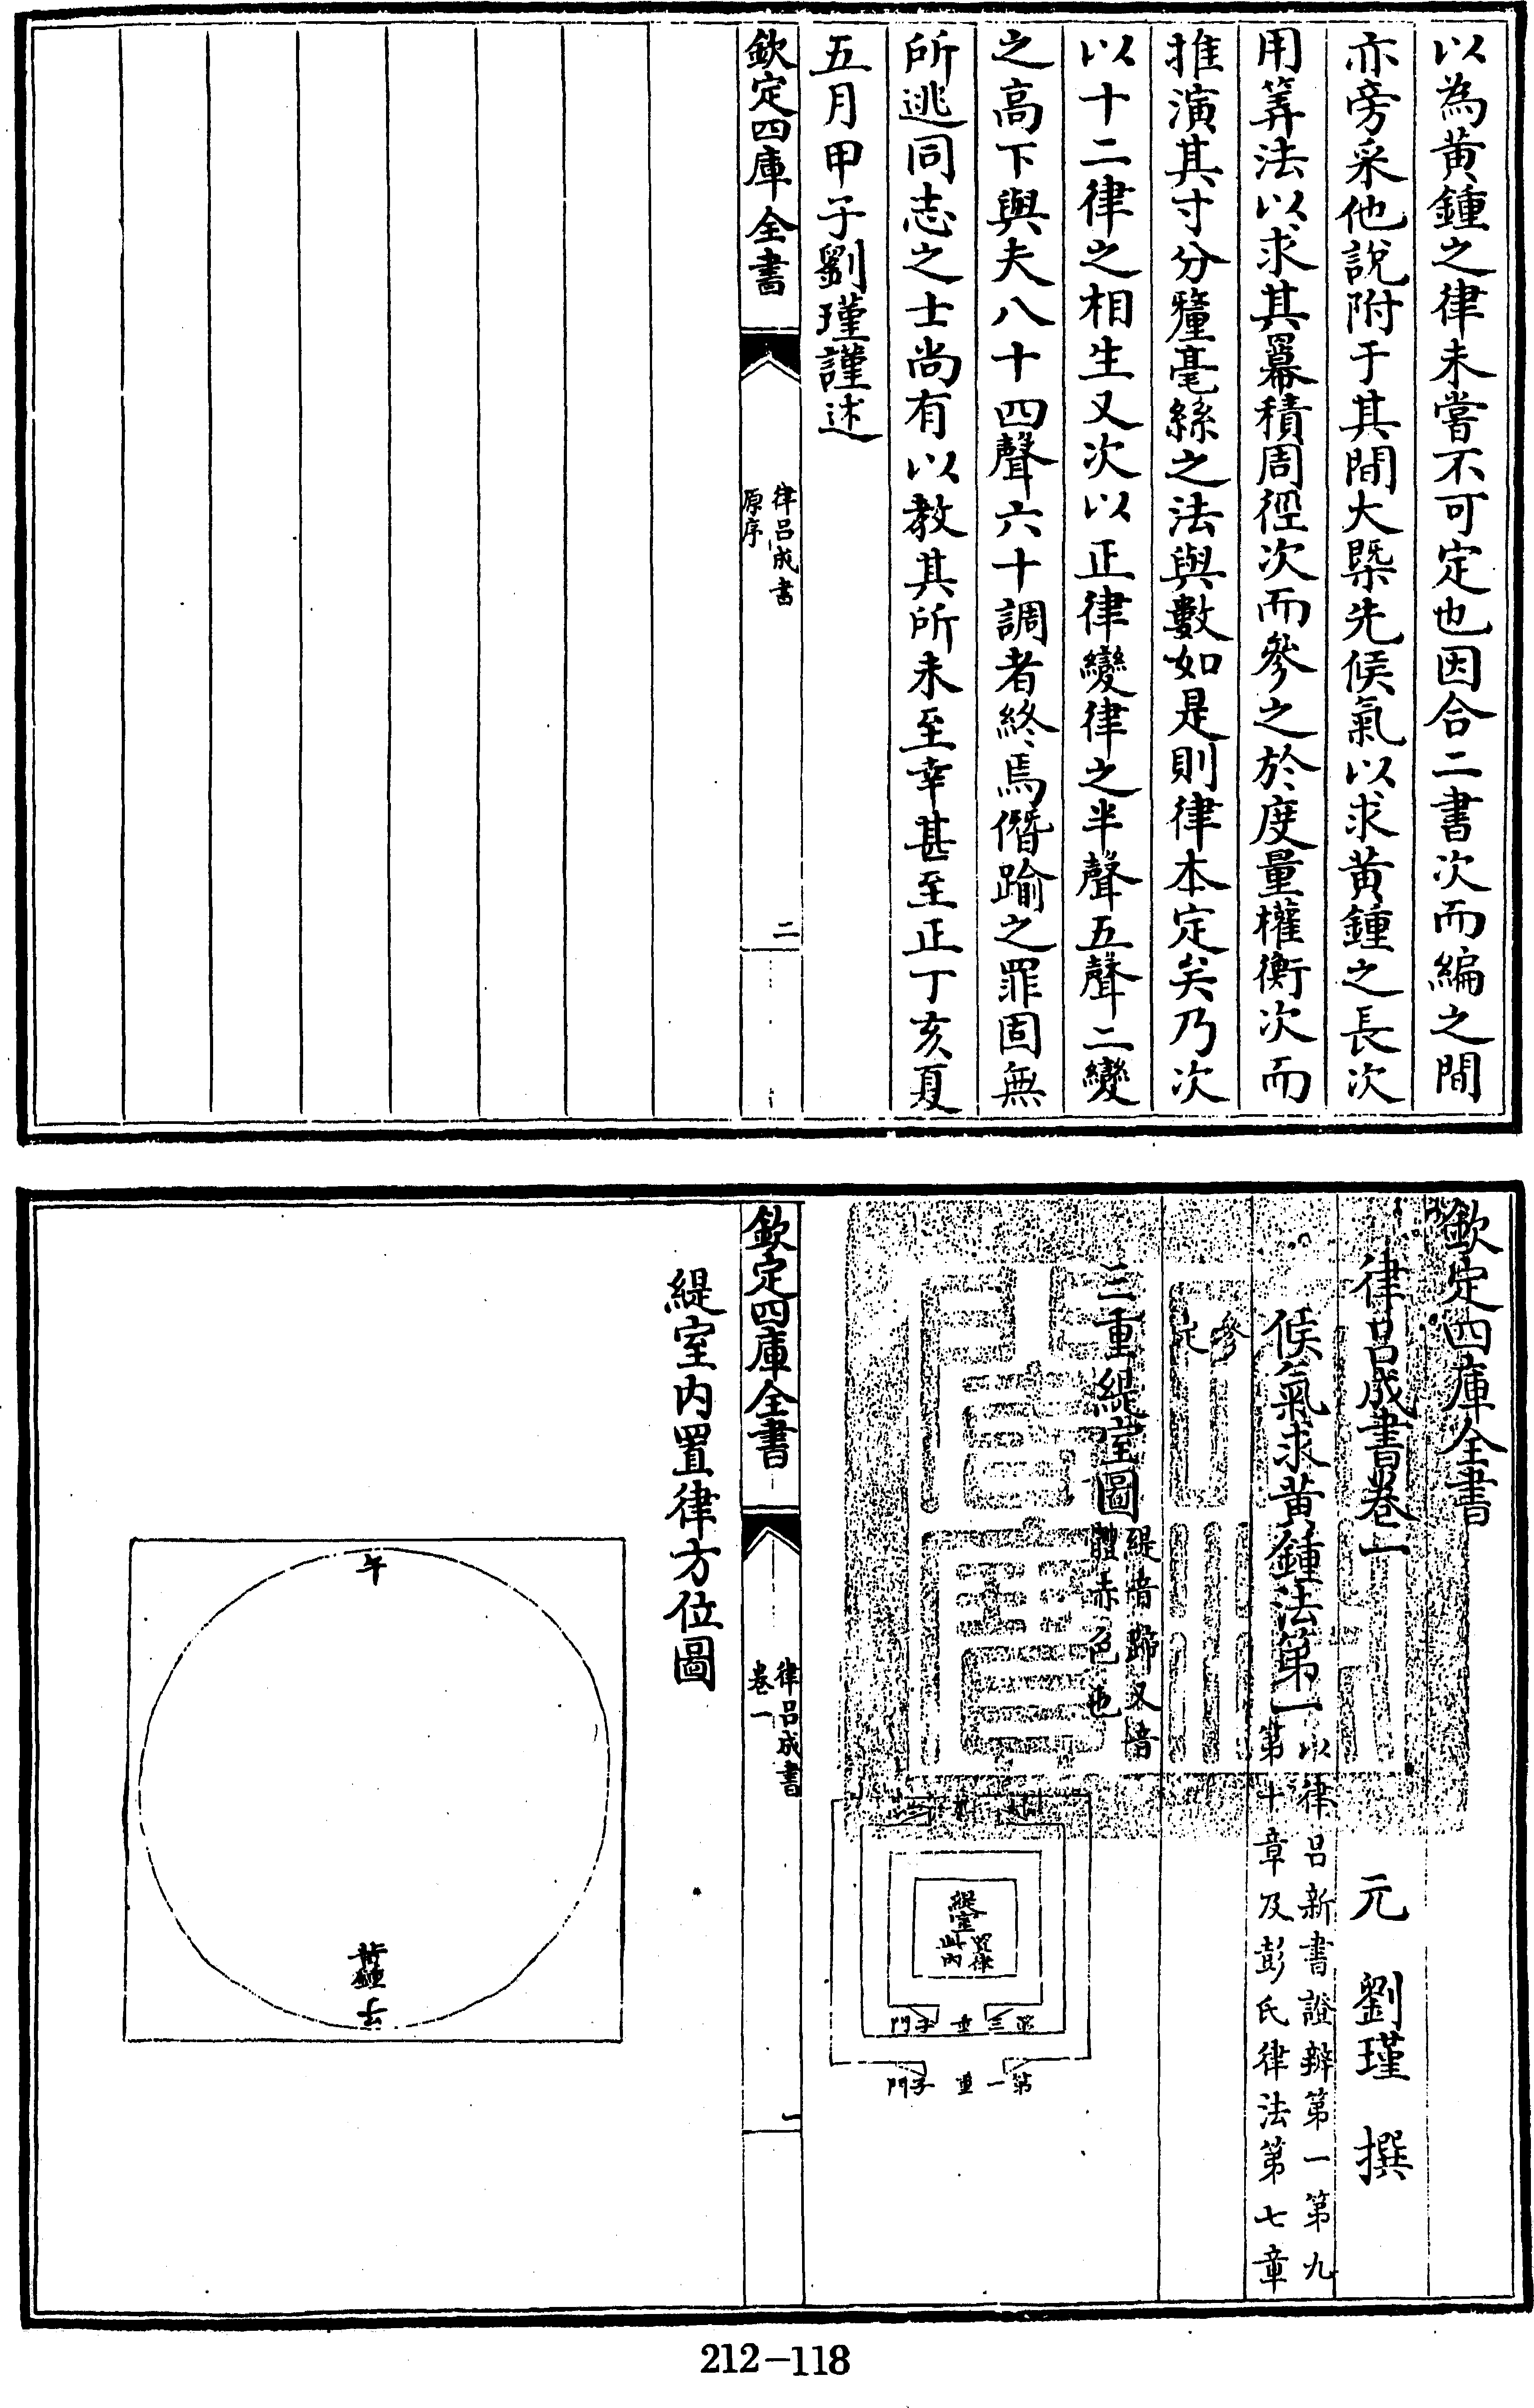 以為黄鍾之律未嘗不可定也因合二書次而編之間
亦旁采他說附于其間大槩先候氣以求黄鍾之長次
用筭法以求其冪積周徑次而參之於度量權衡次而
推演其寸分釐毫絲之法與數如是則律本定矣乃次
以十二律之相生又次以正律變律之半聲五聲二變
之高下與夫八十四聲六十調者終焉僭踰之罪固無
所逃同志之士尚有以教其所未至幸甚至正丁亥夏
五月甲子劉瑾謹述
欽定四庫全書
律吕成書
原序
二
欽定四庫全書
律吕成書卷一
元 劉瑾 撰
候氣求黄鍾法第一
以律吕新書證辨第一第九
第十章及彭氏律法第七章
參
定
三重緹室圖
緹音蹄又音
體赤色也
緹室
置律
此内
第三重子門
第一重子門
欽定四庫全書
律吕成書
卷一
一
緹室内置律方位圖
午
黄鍾
子
212-118